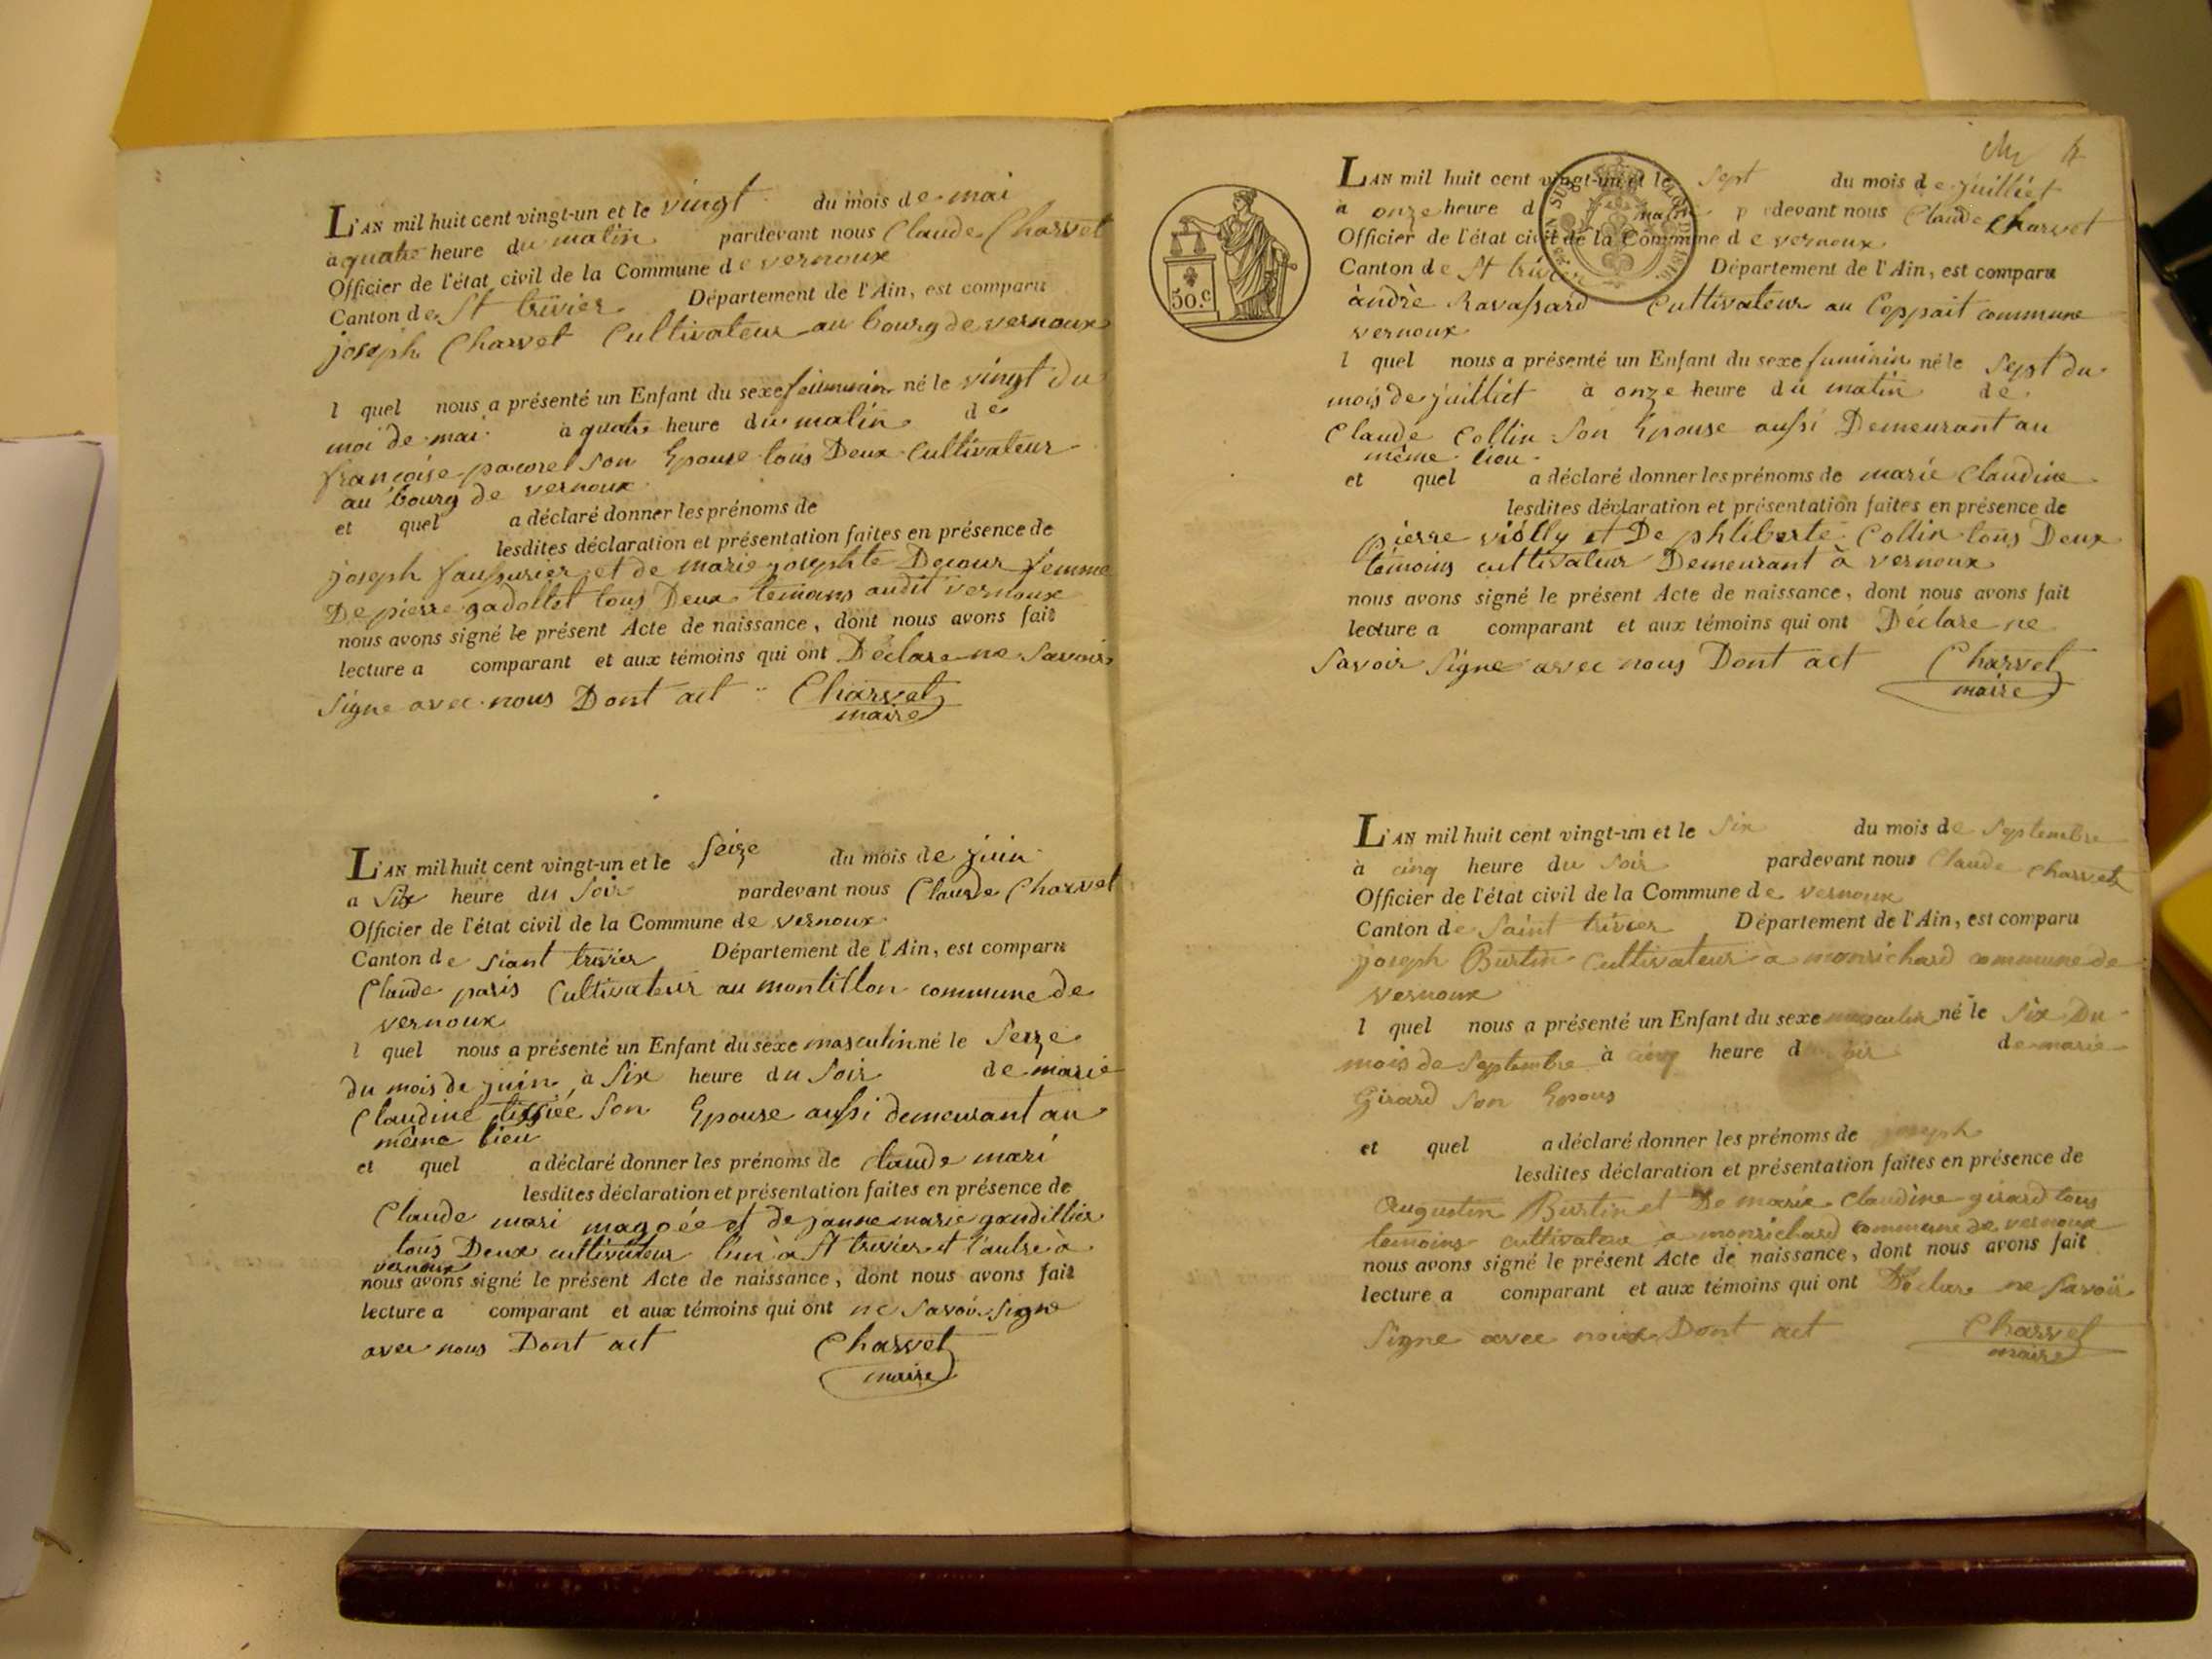 L'AN mil huit cent vingt-un et le vingt du mois de mai
à quatre heure du matin pardevant nous Claude Charvet
Officier de l'état civil de la Commune de vernoux
Canton de St trivier Département de l'Ain, est comparu
joseph Charvet Cultivateur au bourg de vernoux
l quel nous a présenté un Enfant du sexe né le vingt du
moi de mai à quatre heure du matin de
françoise son Epouse tous Deux Cultivateur
au bourg de vernoux
et quel a déclaré donner les prénoms de
lesdites déclaration et présentation faites en présence de
joseph et de marie josephte Decour femme
De pierre gadollet tous Deux temoins audit vernoux
nous avons signé le présent Acte de naissance, dont nous avons fait
lecture a comparant et aux témoins qui ont Déclare ne Savoir
Signe avec nous Dont act Charvet
maire
L'AN mil huit cent vingt-un et le Seize du mois de juin
a Six heure du Soir pardevant nous Claude Charvet
Officier de l'état civil de la Commune de vernoux
Canton de siant trivier Département de l'Ain, est comparu
Claude paris Cultivateur au montillon commune de
vernoux
l quel nous a présenté un Enfant du sexe masculin né le Seize
du mois de juin à Six heure du Soir de marie
Claudine Son Epouse aussi demeurant au
même lieu
et quel a déclaré donner les prénoms de claude mari
lesdites déclaration et présentation faites en présence de
Claude mari et de janne marie gandillier
tous Deux cultivateur l'un à St trivier et l'autre à
vernoux
nous avons signé le présent Acte de naissance, dont nous avons fait
lecture a comparant et aux témoins qui ont ne Savoir Signe
avec nous Dont act Charvet
maire
50.C
L'AN mil huit cent vingt-un et le Sept du mois de juilliet
a onze heure d matin p devant nous Claude Charvet
Officier de l'état civil de la Commune de vernoux
Canton de St trivier Département de l'Ain, est comparu
andrè Ravassard Cultivateur au Coppait commune
vernoux
l quel nous a présenté un Enfant du sexe né le Sept du
mois de juilliet à onze heure du matin de
Claude Collin Son Epouse aussi Demeurant au
même lieu
et quel a déclaré donner les prénoms de marie Claudine
lesdites déclaration et présentation faites en présence de
pierre violly et De phliberte Collin tous Deux
témoins cultivateur Demeurant à vernoux
nous avons signé le présent Acte de naissance, dont nous avons fait
lecture a comparant et aux témoins qui ont Déclare ne
Savoir Signe avec nous Dont act Charvet
maire
L'AN mil huit cent vingt-un et le Six du mois de Septembre
à cinq heure du Soir pardevant nous Claude Charvet
Officier de l'état civil de la Commune de vernoux
Canton de Saint trivier Département de l'Ain, est comparu
joseph Burtin Cultivateur à monrichard commune de
vernoux
l quel nous a présenté un Enfant du sexe masculin né le Six Du
mois de Septembre à cinq heure d soir de marie
Girard Son Epous
et quel a déclaré donner les prénoms de joseph
lesdites déclaration et présentation faites en présence de
Augustin Burtin et De marie Claudine girard tous
temoins cultivateur à monrichard commune de vernoux
nous avons signé le présent Acte de naissance, dont nous avons fait
lecture a comparant et aux témoins qui ont Déclare ne Savoir
Signe avec nous Dont act Charvet
maire